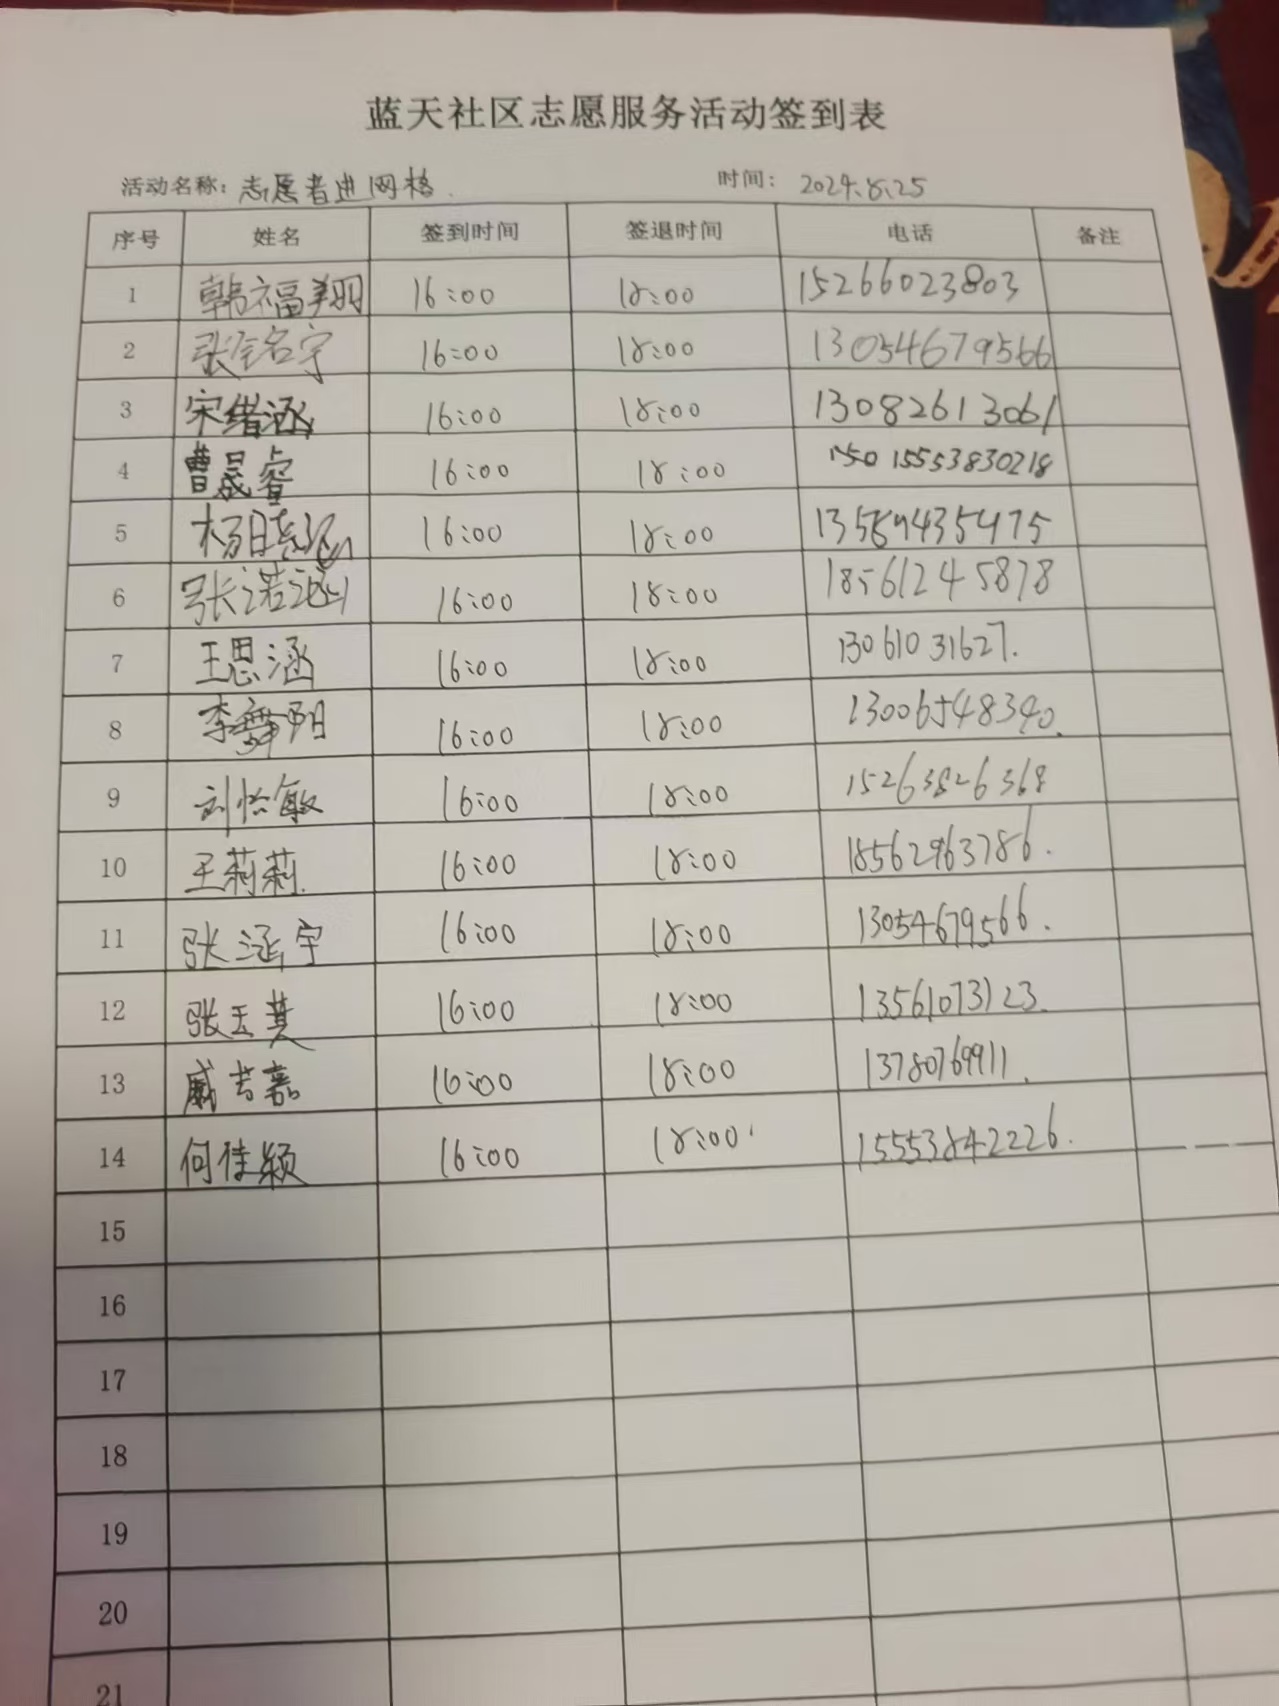 蓝天社区志愿服务活动签到表
活动名称：志愿者进网格 时间： 2024.8.25
序号 姓名 签到时间 签退时间 电话 备注
1 韩福翔 16:00 18:00 15266023803
2 张铭宇 16:00 18:00 13054679566
3 宋绪涵 16:00 18:00 13082613061
4 曹晟睿 16:00 18:00 15553830218
5 杨 16:00 18:00 13589435475
6 张诺涵 16:00 18:00 18561245878
7 王思涵 16:00 18:00 13061031627.
8 李舜阳 16:00 18:00 13006548340.
9 刘怡敏 16:00 18:00 15263826368
10 王莉莉. 16:00 18:00 18562963786.
11 张涵宇 16:00 18:00 13054679566.
12 张玉其 16:00 18:00 13561073123.
13 吉嘉 16:00 18:00 13780769911.
14 何佳颖 16:00 18:00 15553842226.
15
16
17
18
19
20
21